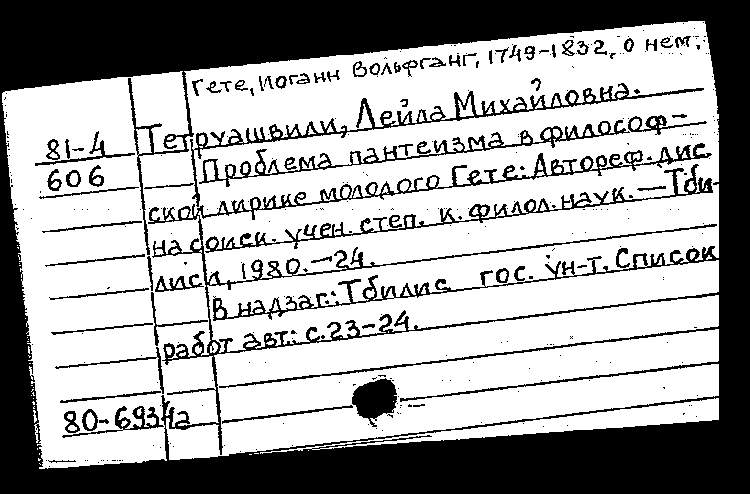 Гете, Иоганн Вольфганг, 1749-1832, о нем.
81-4 Тетруашвили, Лейла Михайловна.
606 Проблема пантеизма в философ-
ской лирике молодого Гете: Автореф. дис.
на соиск. учен. степ. к. филол. наук. — Тби-
лиси, 1980. — 24.
В надзаг.: Тбилис гос. ун-т. Список
работ авт.: с. 23-24.
80-6934а